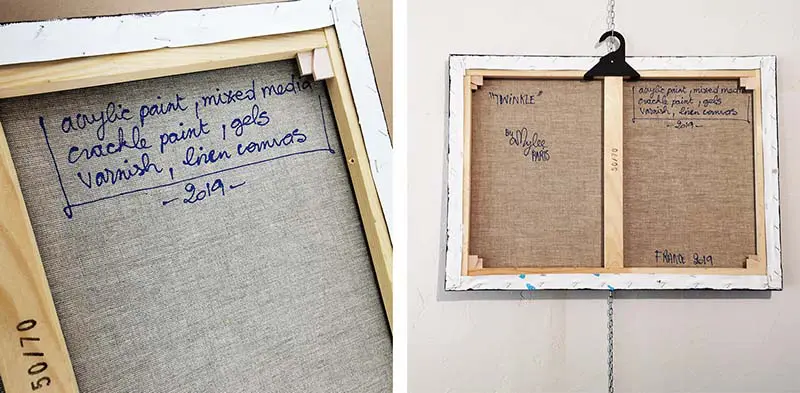 acrylic paint, mixed media
crackle paint, gels
varnish, linen canvas
- 2019 -
50/70
"TWINKLE"
by Mylee
PARIS
50/70
acrylic paint, mixed media
crackle paint, gels
varnish, linen canvas
- 2019 -
FRANCE 2019